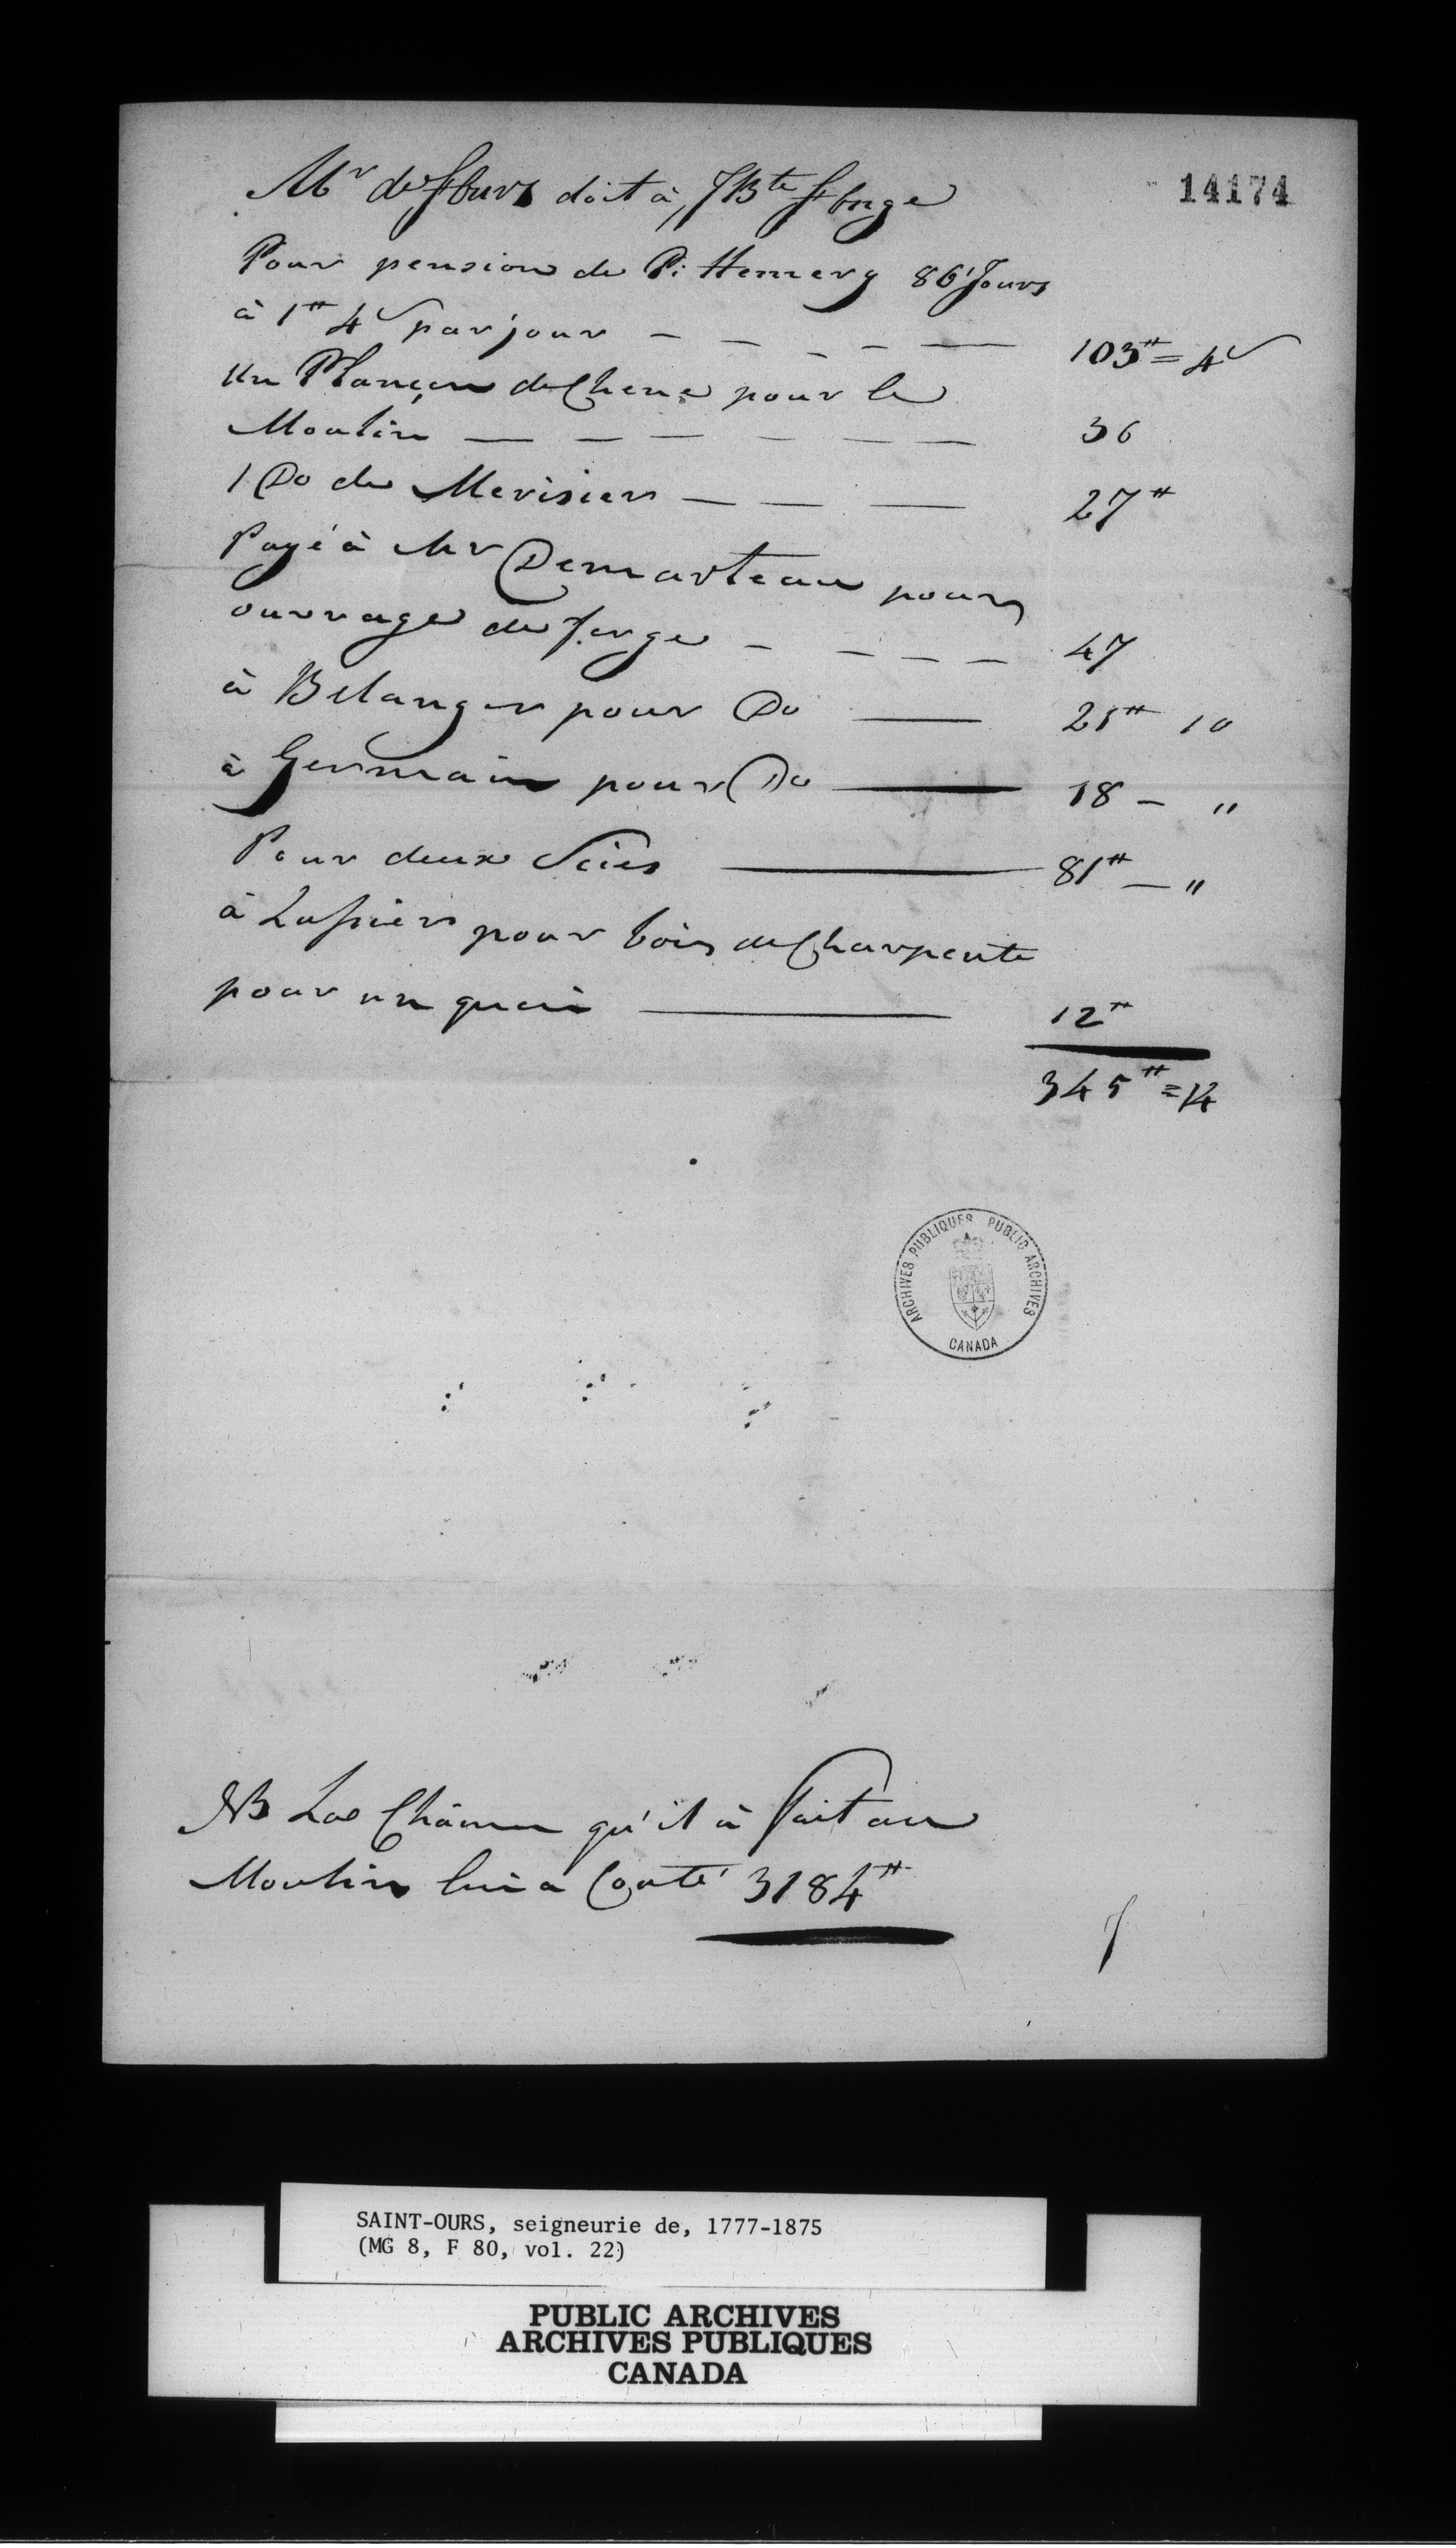 14174
Mr de St Ours doit à J Bte St Onge
Pour pension de P: Hemery 86 Jours
à 1# 4s par jour — — — — — 103# = 4s
un Plançon de Chene pour le
Moulin — — — — — — 36
1 Do de Merisier — — — 27#
Payé à Mr Demarteau pour
ouvrage de forge — — — — 47
à Belanger pour Do — 21# 10
à Germain pour Do — 18 — "
Pour deux Scies — 81# — "
à Lussier pour bois de Charpente
pour un quai — 12#
345# = 14
ARCHIVES PUBLIQUES PUBLIC ARCHIVES
CANADA
NB La qu'il à fait au
Moulin lui a Couté 3184#
SAINT-OURS, seigneurie de, 1777-1875
(MG 8, F 80, vol. 22)
PUBLIC ARCHIVES
ARCHIVES PUBLIQUES
CANADA